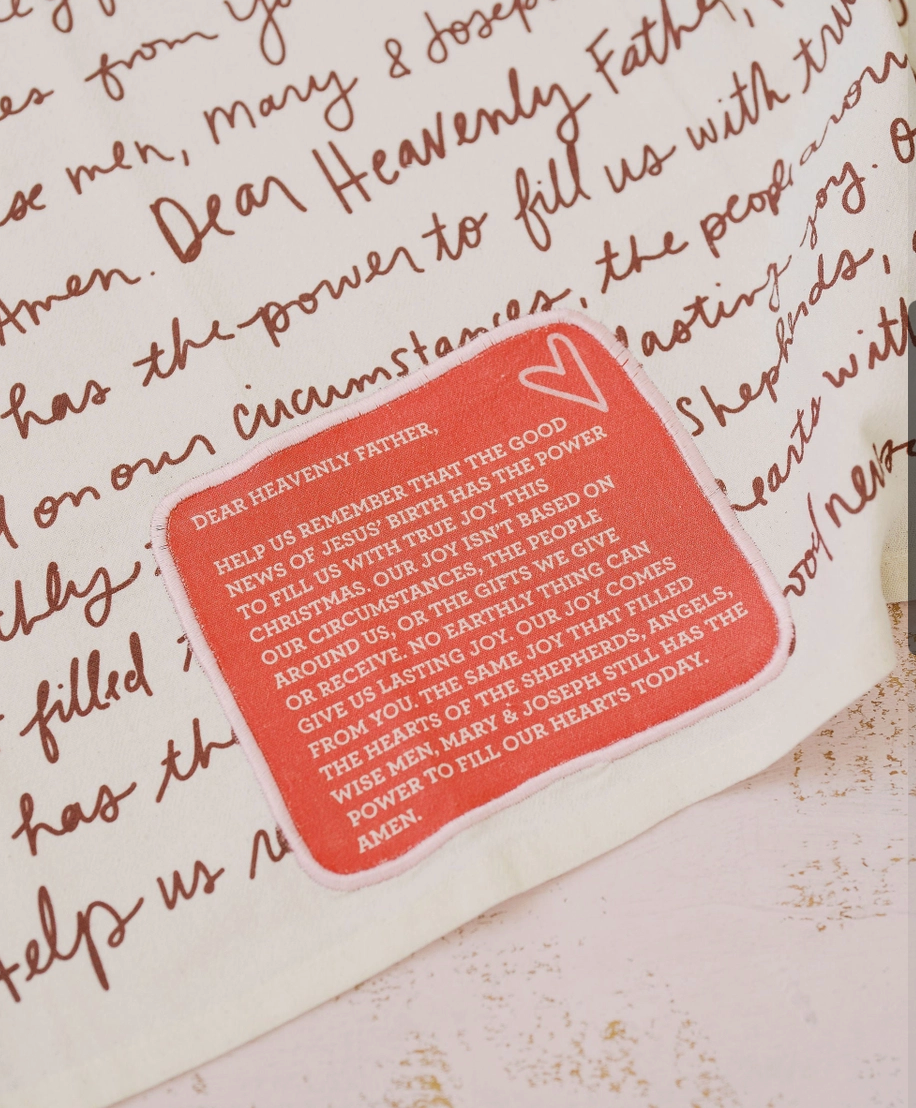 es from yo
se men, Mary & Joseph
Amen. Dear Heavenly Father,
has the power to fill us with tru
d on our circumstances, the people aroun
lasting joy. O
filled
Shepherds,
has the
hearts with
Help us
good news
DEAR HEAVENLY FATHER,
HELP US REMEMBER THAT THE GOOD
NEWS OF JESUS' BIRTH HAS THE POWER
TO FILL US WITH TRUE JOY THIS
CHRISTMAS. OUR JOY ISN'T BASED ON
OUR CIRCUMSTANCES, THE PEOPLE
AROUND US, OR THE GIFTS WE GIVE
OR RECEIVE. NO EARTHLY THING CAN
GIVE US LASTING JOY. OUR JOY COMES
FROM YOU. THE SAME JOY THAT FILLED
THE HEARTS OF THE SHEPHERDS, ANGELS,
WISE MEN, MARY & JOSEPH STILL HAS THE
POWER TO FILL OUR HEARTS TODAY.
AMEN.